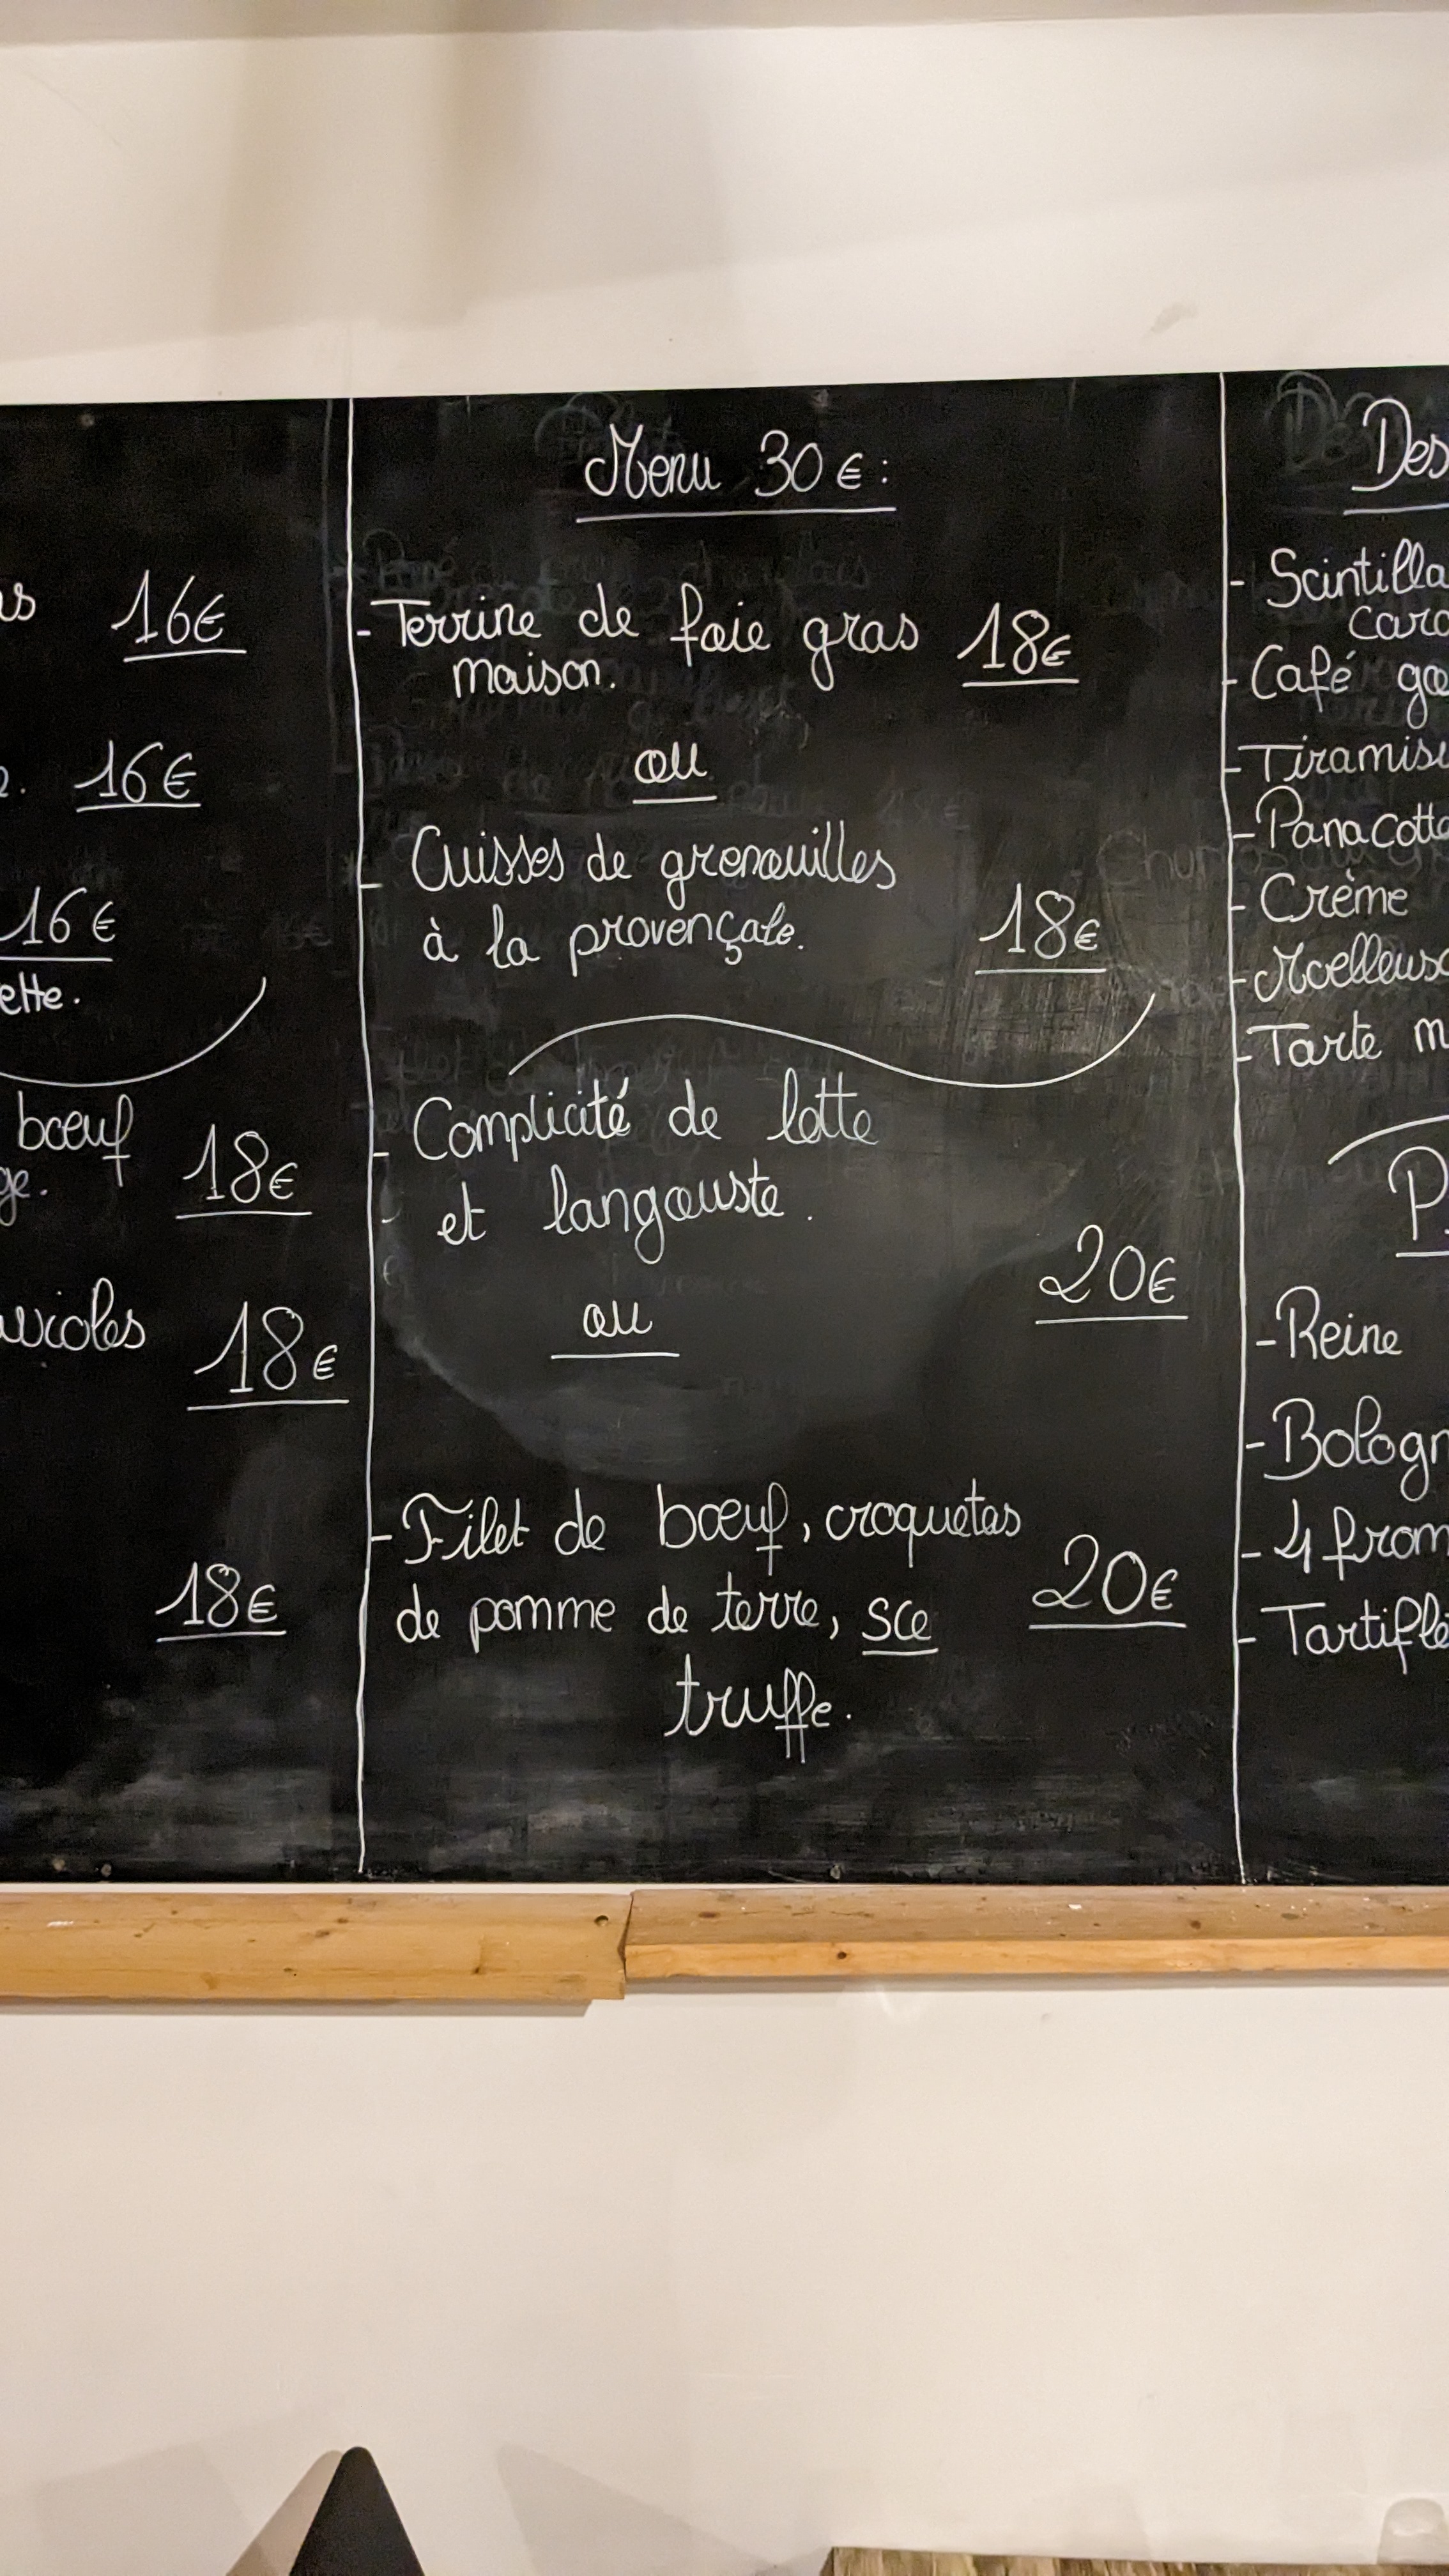 16€
16€
16€
ette.
bœuf
ge.
18€
18€
18€
Menu 30€:
- Terrine de foie gras 18€
maison.
ou
- Cuisses de grenouilles
à la provençale. 18€
- Complicité de lotte
et langouste.
20€
ou
- Filet de bœuf, croquetas
de pomme de terre, sce 20€
truffe.
Des
- Scintilla
cara
- Café go
- Tiramisu
- Pana cotta
- Crème
- Moelleus
- Tarte m
P
- Reine
- Bologn
- 4 from
- Tartifle